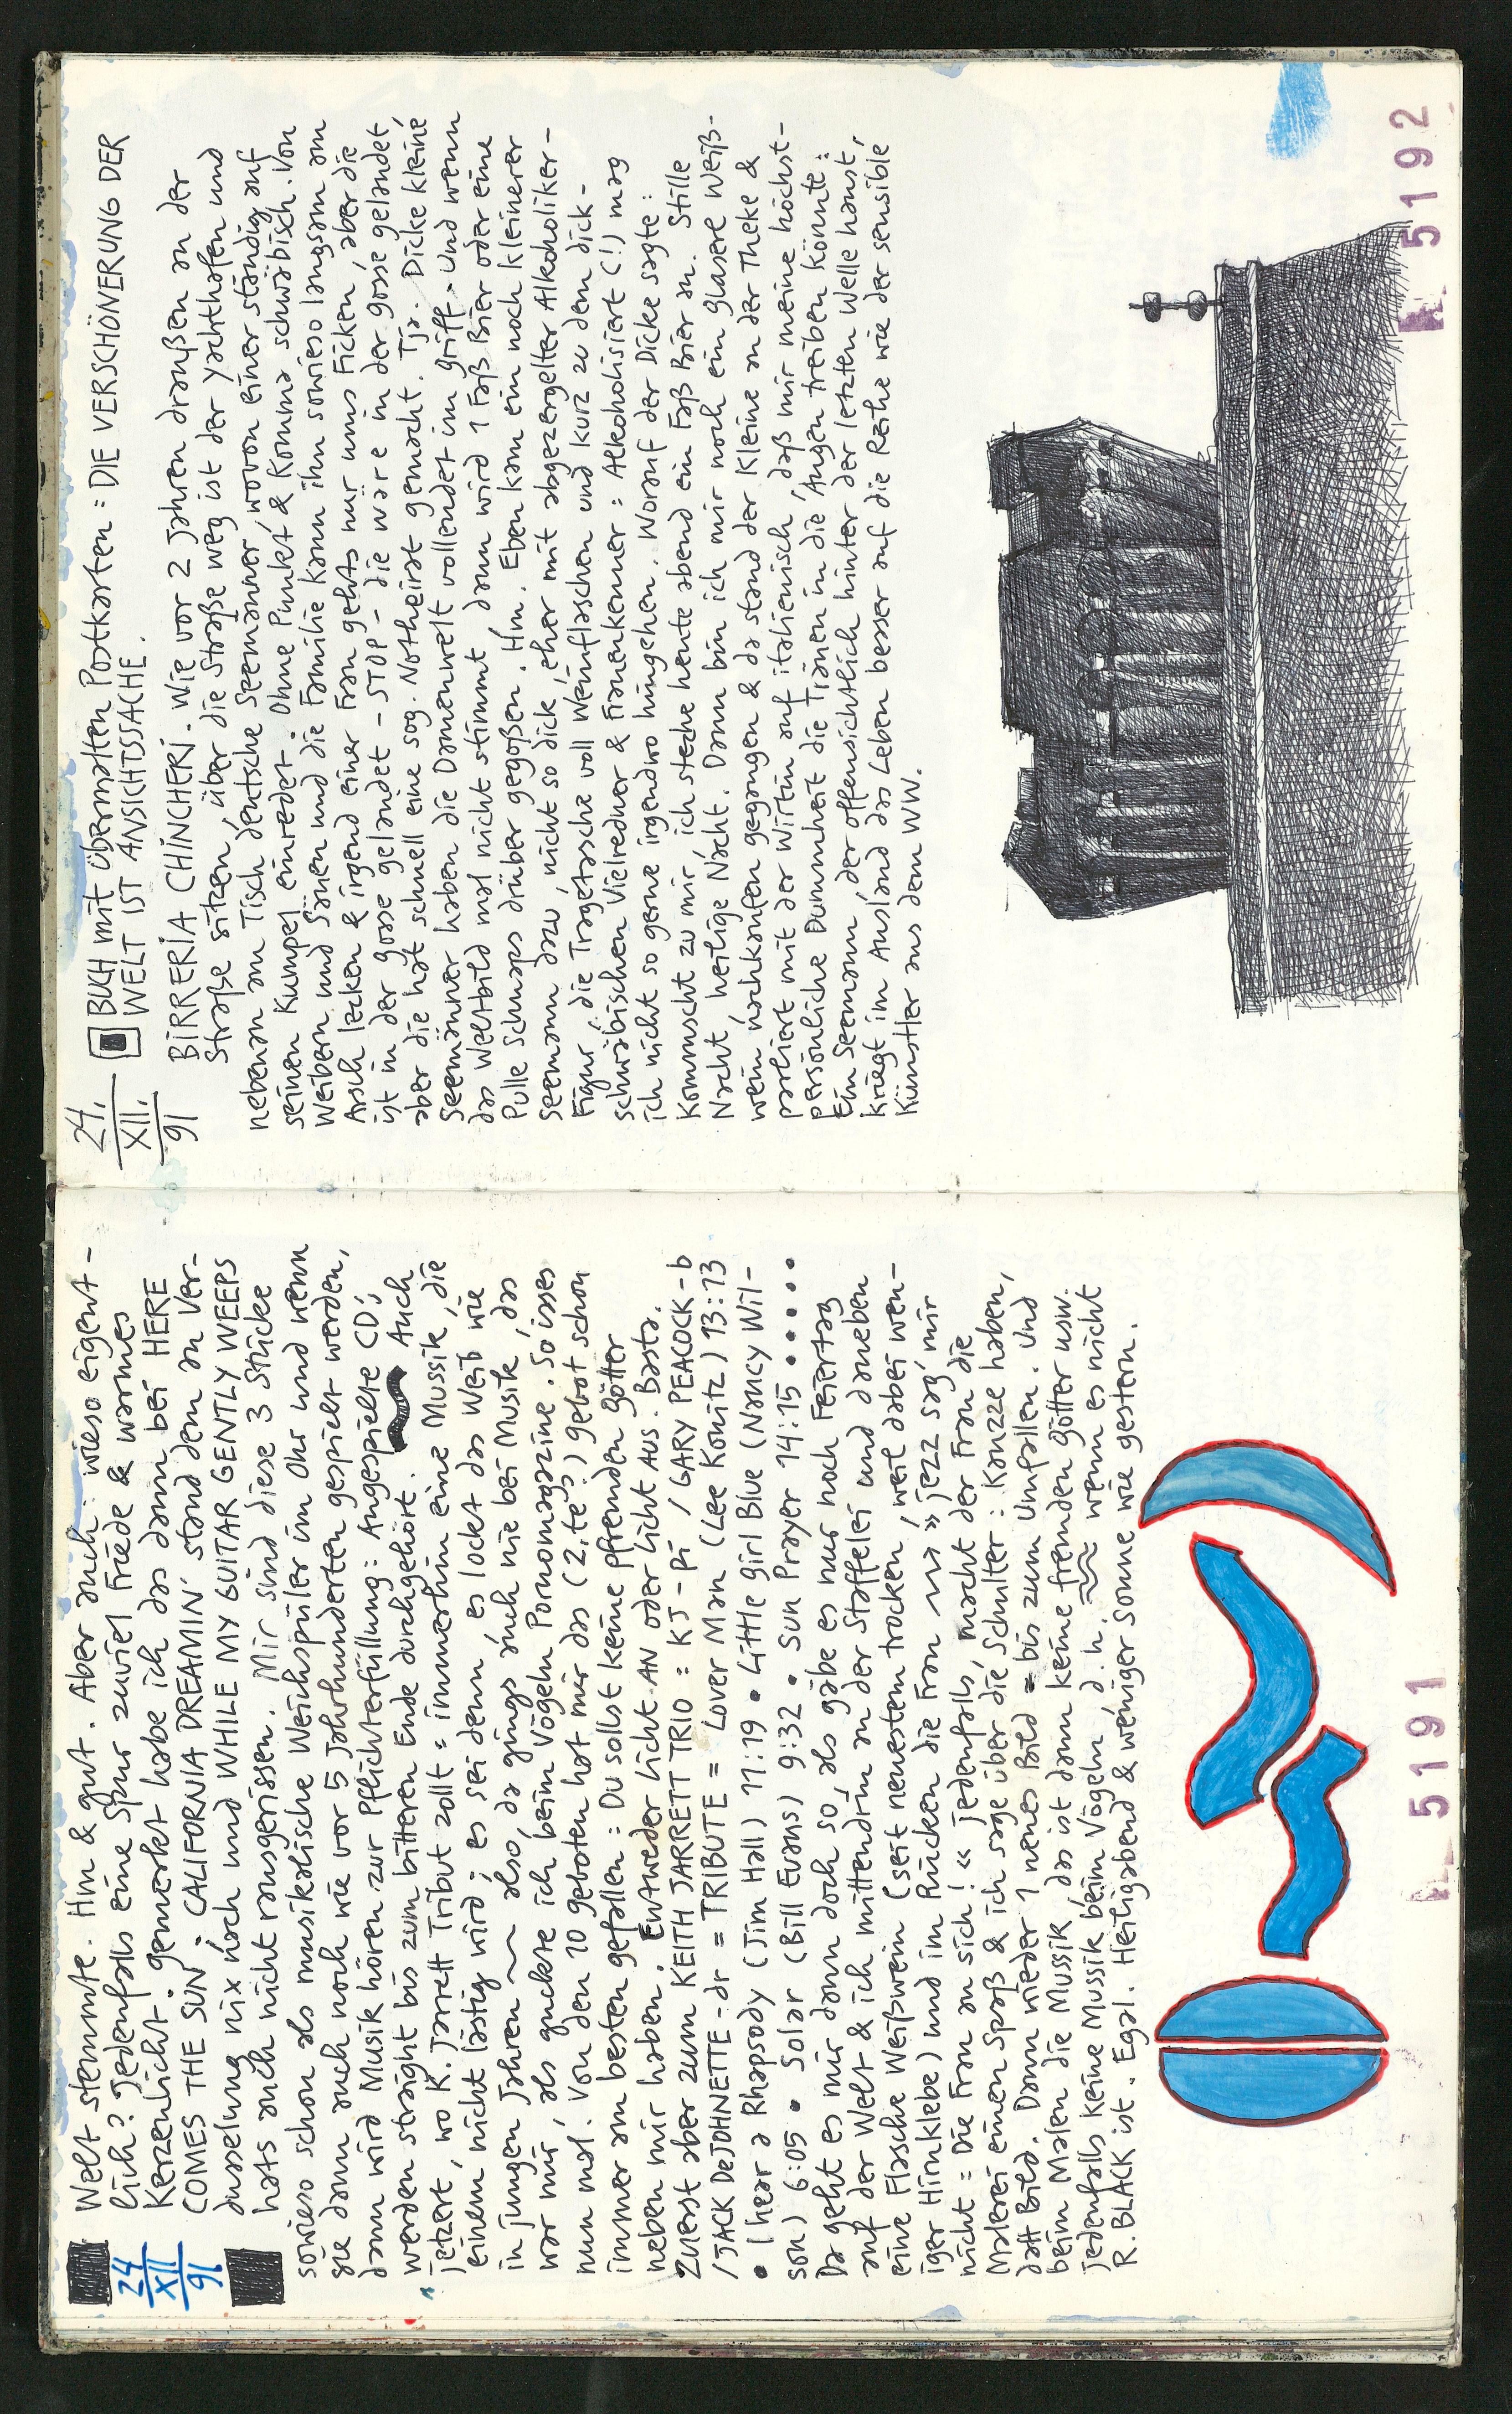 24
XII
91
Welt stemmte. Hm & gut. Aber auch: wieso eigent-
lich? Jedenfalls eine Spur zuviel Friede & warmes
Kerzenlicht. gemerkt habe ich das dann bei HERE
COMES THE SUN. CALIFORNIA DREAMIN' stand dem an Ver-
dusselung nix nach und WHILE MY GUITAR GENTLY WEEPS
hats auch nicht rausgerissen. Mir sind diese 3 Stücke
sowieso schon als musikalische Weichspüler im Ohr und wenn
sie dann auch noch wie vor 5 Jahrhunderten gespielt werden,
dann wird Musik hören zur Pflichterfüllung: Angespielte CD's
werden straight bis zum bitteren Ende durchgehört. Auch
jetzert, wo K. Jarrett Tribut zollt = immerhin eine Mussik, die
einem nicht lästig wird; es sei denn, es lockt das Weib wie
in jungen Jahren also, da gings auch nie bei Musik, das
war mir, als guckste ich beim Vögeln Pornomagazine. So isses
nun mal. Von den 10 geboten hat mir das (2.te?) gebot schon
immer am besten gefallen: Du sollst keine pfremden götter
neben mir haben. Entweder Licht AN oder Licht AUS. Basta.
Zuerst aber zum KEITH JARRETT TRIO: KJ - pi / GARY PEACOCK - b
/ JACK DeJOHNETTE - dr = TRIBUTE = Lover Man (Lee Konitz) 13:13
• I hear a Rhapsody (Jim Hall) 11:19 • Little girl Blue (Nancy Wil-
son) 6:05 • Solar (Bill Evans) 9:32 • Sun Prayer 14:15 • • • • • •
Da geht es mir dann doch so, als gäbe es nur noch Feiertag
auf der Welt & ich mittendrin an der Staffelei und daneben
eine Flasche Weißwein (seit neuestem trocken, weil dabei wen-
iger Hirnklebe) und im Rücken die Frau »jezz sag' mir
nicht = Die Frau an sich!« jedenfalls, macht der Frau die
Malerei einen Spaß & ich sage über die Schulter: Kanzze haben,
datt Bild. Dann wieder 1 neues Bild = bis zum Umfallen. Und
beim Malen die Mussik, das ist dann keine fremden götter usw.
Jedenfalls keine Mussik beim Vögeln, d.h. wenn es nicht
R. BLACK ist. Egal. Heiligabend & weniger Sonne wie gestern.
5191
24.
XII.
91
BUCH mit übermalten Postkarten: DIE VERSCHÖNERUNG DER
WELT IST ANSICHTSSACHE.
BIRRERIA CHINCHERI. Wie vor 2 Jahren draußen an der
Straße sitzen, über die Straße weg ist der Yachthafen und
nebenan am Tisch deutsche Seemänner, wovon einer ständig auf
seinen Kumpel einredet. Ohne Punkt & Komma schwäbisch. Von
Weibern und Sänen und die Familie kann ihn sowieso langsam am
Arsch lecken & irgend einer Frau gehts nur ums Ficken, aber die
ist in der gosse gelandet - STOP - die wäre in der gosse gelandet,
aber die hat schnell eine sog. Notheirat gemacht. Tja. Dicke kleine
Seemänner haben die Damenwelt vollendet im griff. Und wenn
das Weltbild mal nicht stimmt, dann wird 1 Faß Bier oder eine
Pulle Schnaps drüber gegoßen. Hm. Eben kam ein noch kleinerer
Seemann dazu, nicht so dick, eher mit abgezergelter Alkoholiker-
Figur, die Tragetasche voll Weinflaschen und kurz zu dem dick-
schwäbischen Vielredner & Frauenkenner: Alkoholisiert (!) mag
ich nicht so gerne irgendwo hingehen. Worauf der Dicke sagte:
Kommscht zu mir, ich steche heute abend ein Faß Bier an. Stille
Nacht, heilige Nacht. Dann bin ich mir noch ein glasere Weiß-
wein nachkaufen gegangen & da stand der Kleine an der Theke &
parliert mit der Wirtin auf italienisch, daß mir meine höchst-
persönliche Dummheit die Tränen in die Augen treiben könnte:
Ein Seemann, der offensichtlich hinter der letzten Welle haust,
kriegt im Ausland das Leben besser auf die Reihe wie der sensible
Künstler aus dem WW.
5192